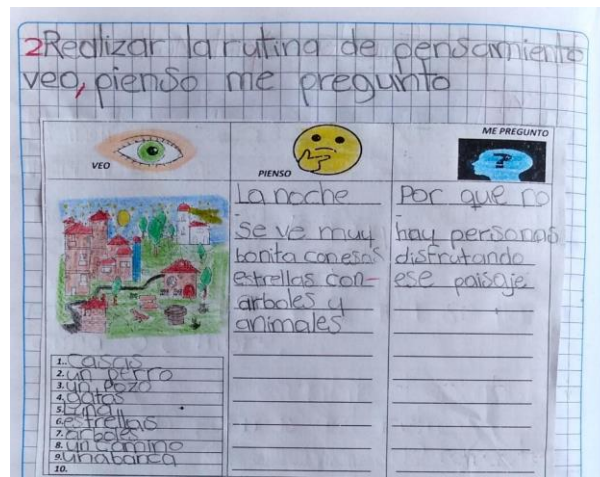 2 Realizar la rutina de pensamiento
veo, pienso me pregunto
VEO
PIENSO
ME PREGUNTO
1. casas
2. un perro
3. un pozo
4. gatos
5. luna
6. estrellas
7. arboles
8. un camino
9. una banca
10.
La noche
se ve muy
bonita con esas
estrellas con
arboles y
animales
Por que no
hay personas
disfrutando
ese paisaje